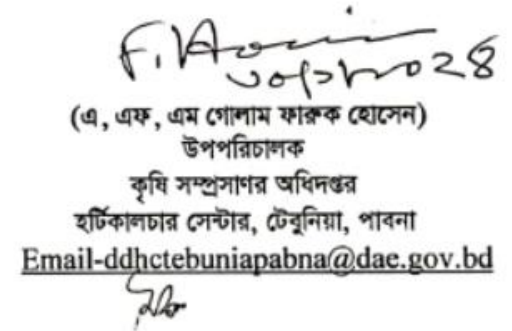 (এ, এফ, এম গোলাম ফারুক হোসেন)
উপপরিচালক
কৃষি সম্প্রসাণর অধিদপ্তর
হর্টিকালচার সেন্টার, টেবুনিয়া, পাবনা
Email-ddhctebuniapabna@dae.gov.bd